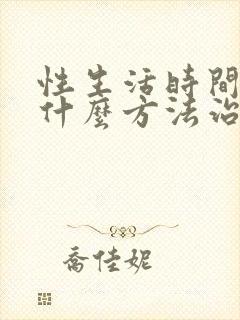 性生活時間
什麼方法治
喬佳妮